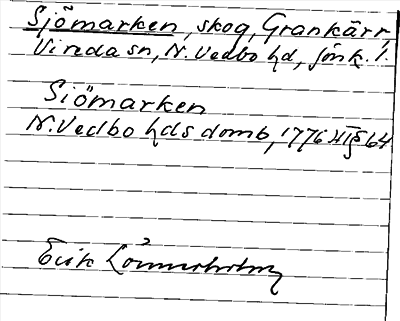 Sjömarken, skog, Grankärr,
Vireda sn, N. Vedbo hd, Jönk. l.
Sjömarken
N. Vedbo hds domb, 1776 HT § 64
Erik Lönnerholm